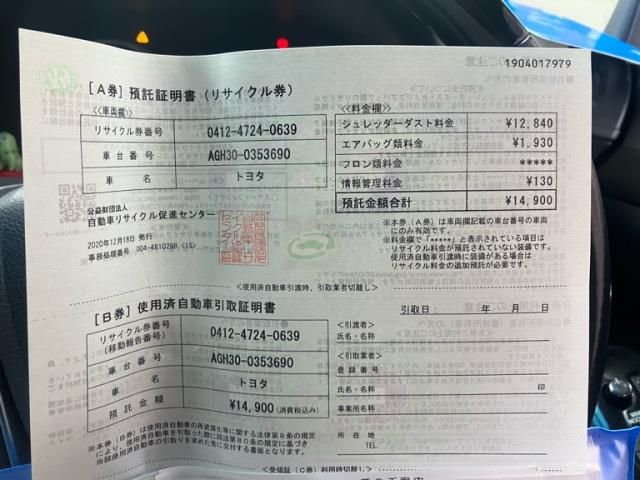 1904017979
[A券] 預託証明書 (リサイクル券)
<車両欄>
リサイクル券番号 0412-4724-0639
車台番号 AGH30-0353690
車 名 トヨタ
公益財団法人
自動車リサイクル促進センター
2020年12月18日 発行
<料金欄>
シュレッダーダスト料金 ¥12,840
エアバッグ類料金 ¥1,930
フロン類料金 *****
情報管理料金 ¥130
預託金額合計 ¥14,900
※本券（A券）は車両欄記載の車台番号の車両
にのみ有効です。
※料金欄で「*****」と表示されている項目は
リサイクル料金が預託されていない装備です。
使用済自動車引渡時に装備がある場合は
リサイクル料金の追加預託が必要です。
使用済自動車引渡時、引取業者切離し
[B券] 使用済自動車引取証明書
引取日： 年 月 日
リサイクル券番号
(移動報告番号) 0412-4724-0639
車台番号 AGH30-0353690
車 名 トヨタ
預託金額 ¥14,900 (消費税込み)
<引渡者>
氏名・名称
<引取業者>
登録番号
氏名・名称 印
事業所名称
所在地
TEL
※本券（B券）は使用済自動車の再資源化等に関する法律第9条の規定
により、使用済自動車を引取った際に同法第80条の規定に基づき
当該使用済自動車の引取りを求めた者に交付する書面となります。
<受領証（C券）利用時切離し>